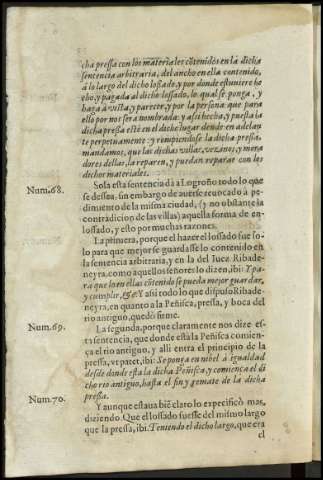 cha pressa con los materiales cõtenidos en la dicha
sentencia arbitraria, del ancho en ella contenido,
à lo largo del dicho losado, y por donde estuuiere he
cho, y pagada al dicho lossado, lo qual se ponga, y
haga à vista, y parecer, y por la persona que para
ello por nos sera nombrada: y assi hecha, y puesta la
dicha pressa estè en el dicho lugar dende en adelan
te perpetuamente: y rompiendose la dicha pressa,
mandamos, que las dichas villas, vezinos, y mora
dores dellas, la reparen, y puedan reparar con los
dichos materiales.
Num. 68.
Sola esta sentencia dà à Logroño todo lo que
se dessea, sin embargo de auerse reuocado à pe-
dimento de la misma ciudad, (y no obstante la
contradicion de las villas) aquella forma de en-
lossado, y esto por muchas razones.
La primera, porque el hazer el lossado fue so-
lo para que mejor se guardasse lo contenido en
la sentencia arbitraria, y en la del Iuez Ribade-
neyra, como aquellos señores lo dizen, ibi: Y pa-
ra que lo en ellas cõtenido se pueda mejor guardar,
y cumplir, &c. Y assi todo lo que dispuso Ribade-
neyra, en quanto a la Peñisca, pressa, y boca del
rio antiguo, quedò firme.
Num. 69.
La segunda, porque claramente nos dize es-
ta sentencia, que donde està la Peñisca comien-
ça el rio antiguo, y alli entra el principio de la
pressa, vt patet, ibi: Se ponga en nibel à igualdad
desde donde esta la dicha Peñisca, y comiença el di
cho rio antiguo, hasta el fin y remate de la dicha
pressa.
Num. 70.
Y aunque estaua biẽ claro lo especificò mas,
diziendo. Que el lossado fuesse del mismo largo
que la pressa, ibi: Teniendo el dicho largo, que era
el